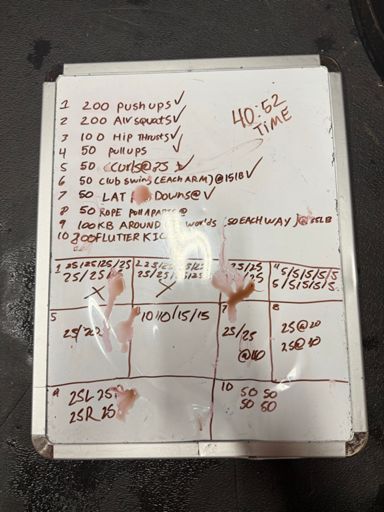 1 200 Pushups ✓
2 200 Air Squats ✓
3 100 Hip Thrusts ✓
4 50 Pullups
5 50 Curls@25 ✓
6 50 Club Swing (EACH ARM) @15LB ✓
7 50 LAT Downs@ ✓
8 50 ROPE PULLAPARTS@
9 100 KB AROUND worlds (50 EACH WAY) @35LB
10 200 FLUTTER KIC
40:52
TIME
1 25/25/25/25
25/25/25
X
2 25/25/25/25
25/25/25/25
25/25
4 5/5/5/5/5
5/5/5/5/5
5
25/
10/10/15/15
7
25/25
@40
8
25@20
25@40
9 25L 25
25R 25
10 50 50
50 50